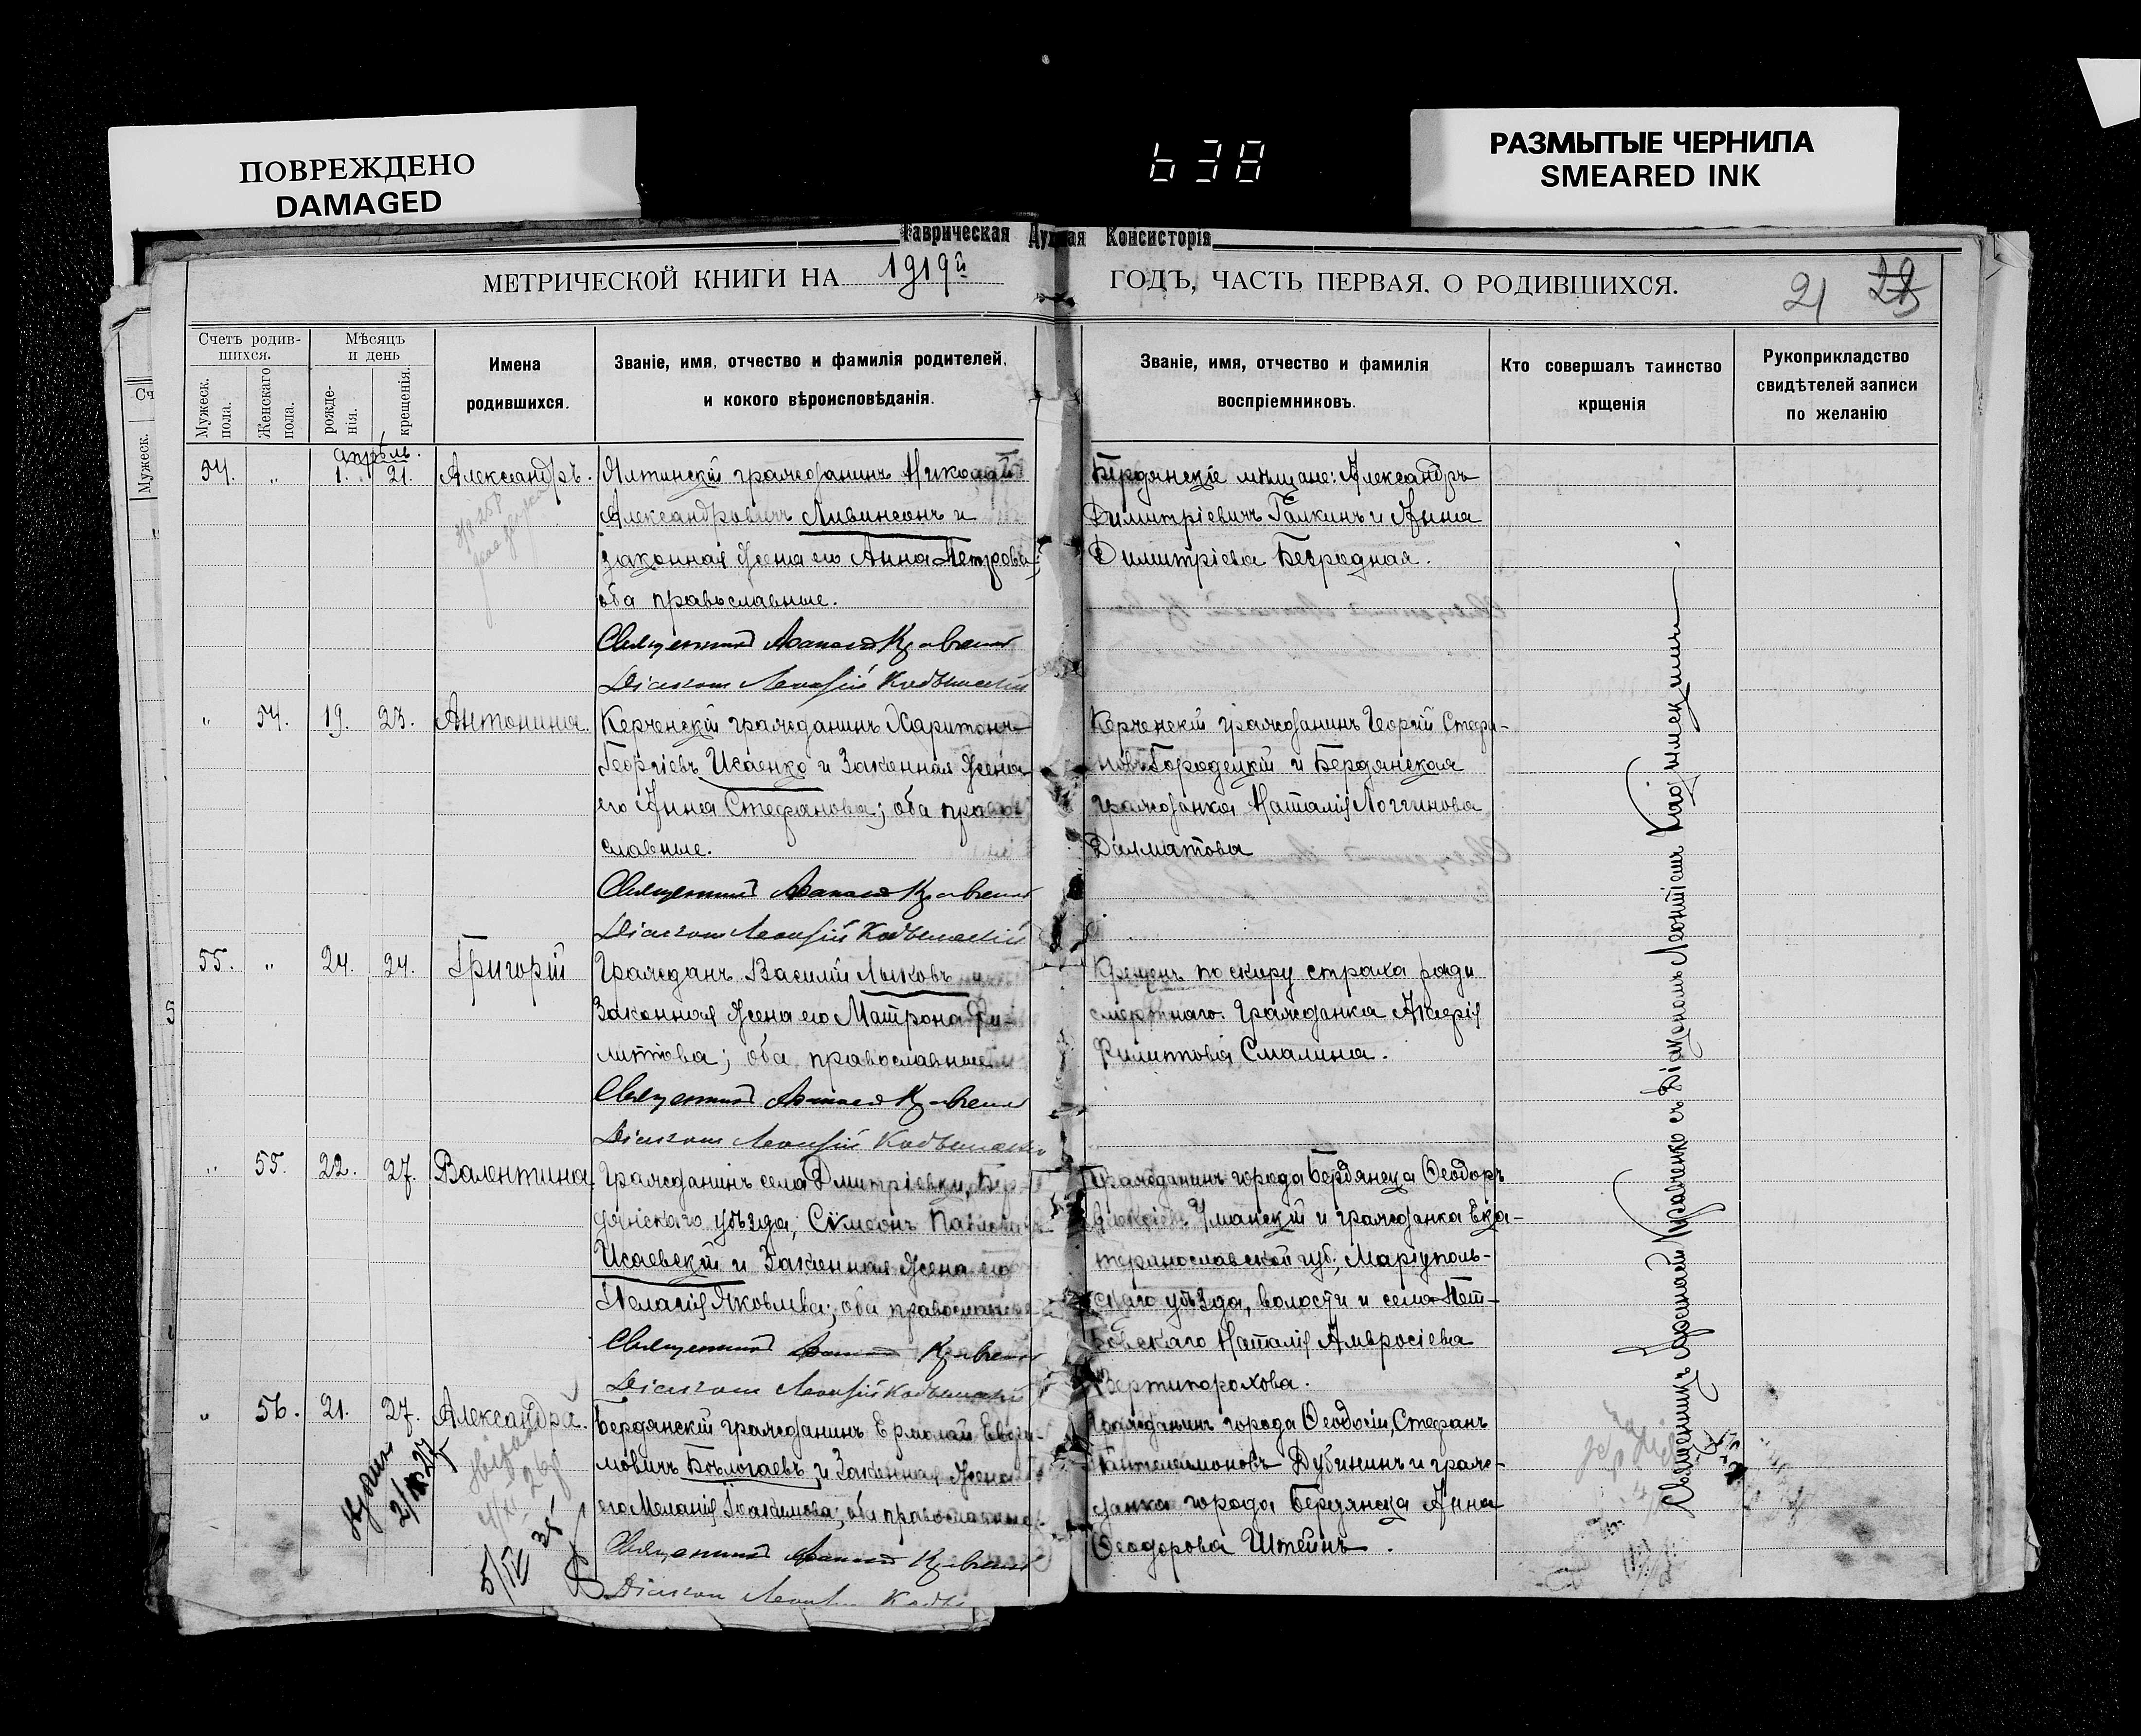 ПОВРЕЖДЕНО
DAMAGED
638
РАЗМЫТЫЕ ЧЕРНИЛА
SMEARED INK
Таврическая Духная Консисторія
МЕТРИЧЕСКОЙ КНИГИ НА 1919й ГОДЪ, ЧАСТЬ ПЕРВАЯ, О РОДИВШИХСЯ.
21 28
Счетъ родив-
шихся.
Мужеск. пола.
Женскаго пола.
Мѣсяцъ
и день
рожде-
нія.
крещенія.
Имена
родившихся.
Званіе, имя, отчество и фамилія родителей,
и кокого вѣроисповѣданія.
Званіе, имя, отчество и фамилія
воспріемниковъ.
Кто совершалъ таинство
крщенія
Рукоприкладство
свидѣтелей записи
по желанію
Мужеск.
Апрѣль.
54. " 1. 21. Александръ.
Ялтинскій гражданинъ Николай
Александровичъ Ливинсонъ и
законная жена его Анна Петрова;
оба православные.
Священникъ Кравченко
Діаконъ
Бердянскіе мѣщане: Александръ
Димитріевичъ Галкинъ и Анна
Димитріева Безродная.
" 54. 19. 23. Антонина.
Керченскій гражданинъ Харитонъ
Георгіевъ Исаенко и Законная жена
его Анна Стефанова; оба право-
славные.
Священникъ Кравченко
Діаконъ
Керченскій гражданинъ Георгій Стефа-
новъ Городецкій и Бердянская
гражданка Наталія Логгинова
Далматова
55. " 24. 24. Григорій
Гражданъ Василій Лыковъ и
Законная жена его Матрона Фи-
липпова; оба православные
Священникъ Кравченко
Діаконъ
Крещенъ по скору страха ради
смертнаго. Гражданка Агафія
Филиппова Смалина.
" 55. 22. 27. Валентина.
Гражданинъ села Дмитріевки, Бер-
дянскаго уѣзда, Сѵмеонъ Павловъ
Исаевскій и Законная жена его
Пелагія Яковлева; оба православные
Священникъ Кравченко
Діаконъ
Гражданинъ города Бердянска Ѳеодоръ
Уманскій и гражданка Ека-
теринославской губ., Маріуполь-
скаго уѣзда, волости и села Пет-
ровскаго Наталія Амвросіева
Вертипорохова.
" 56. 21. 27. Александра.
Бердянскій гражданинъ Ермолай Евфи-
мовичъ Бѣлогаевъ и Законная жена
его Меланія Іоакимова; оба православные.
Священникъ Кравченко
Діаконъ
Гражданинъ города Ѳеодосіи, Стефанъ
Пантелеимоновъ Дубининъ и граж-
данка города Бердянска Анна
Ѳеодорова Штейнъ.
5/IV 35
Священникъ Кравченко съ Діакономъ Леонтіемъ